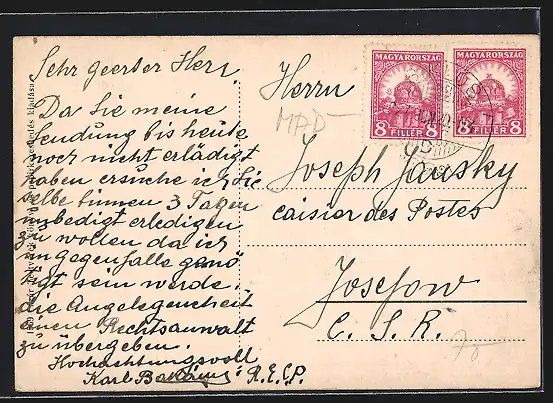 Sehr geerter Herr,
Da Sie meine
Sendung bis heute
noch nicht erlädigt
haben ersuche ich Sie
selbe binnen 3 Tagen
unbedigt erledigen
zu wollen da ich
im gegenfalle genö
tigt sein werde.
die Angelegenheit
einen Rechtsanwalt
zu übergeben.
Hochachtungsvoll
Karl R.E.C.P.
Herrn
MAD
Joseph Jansky
caisier des Postes
Josefow
C. S. R.
MAGYARORSZÁG
8 FILLÉR 8
MAGYARORSZÁG
8 FILLÉR 8